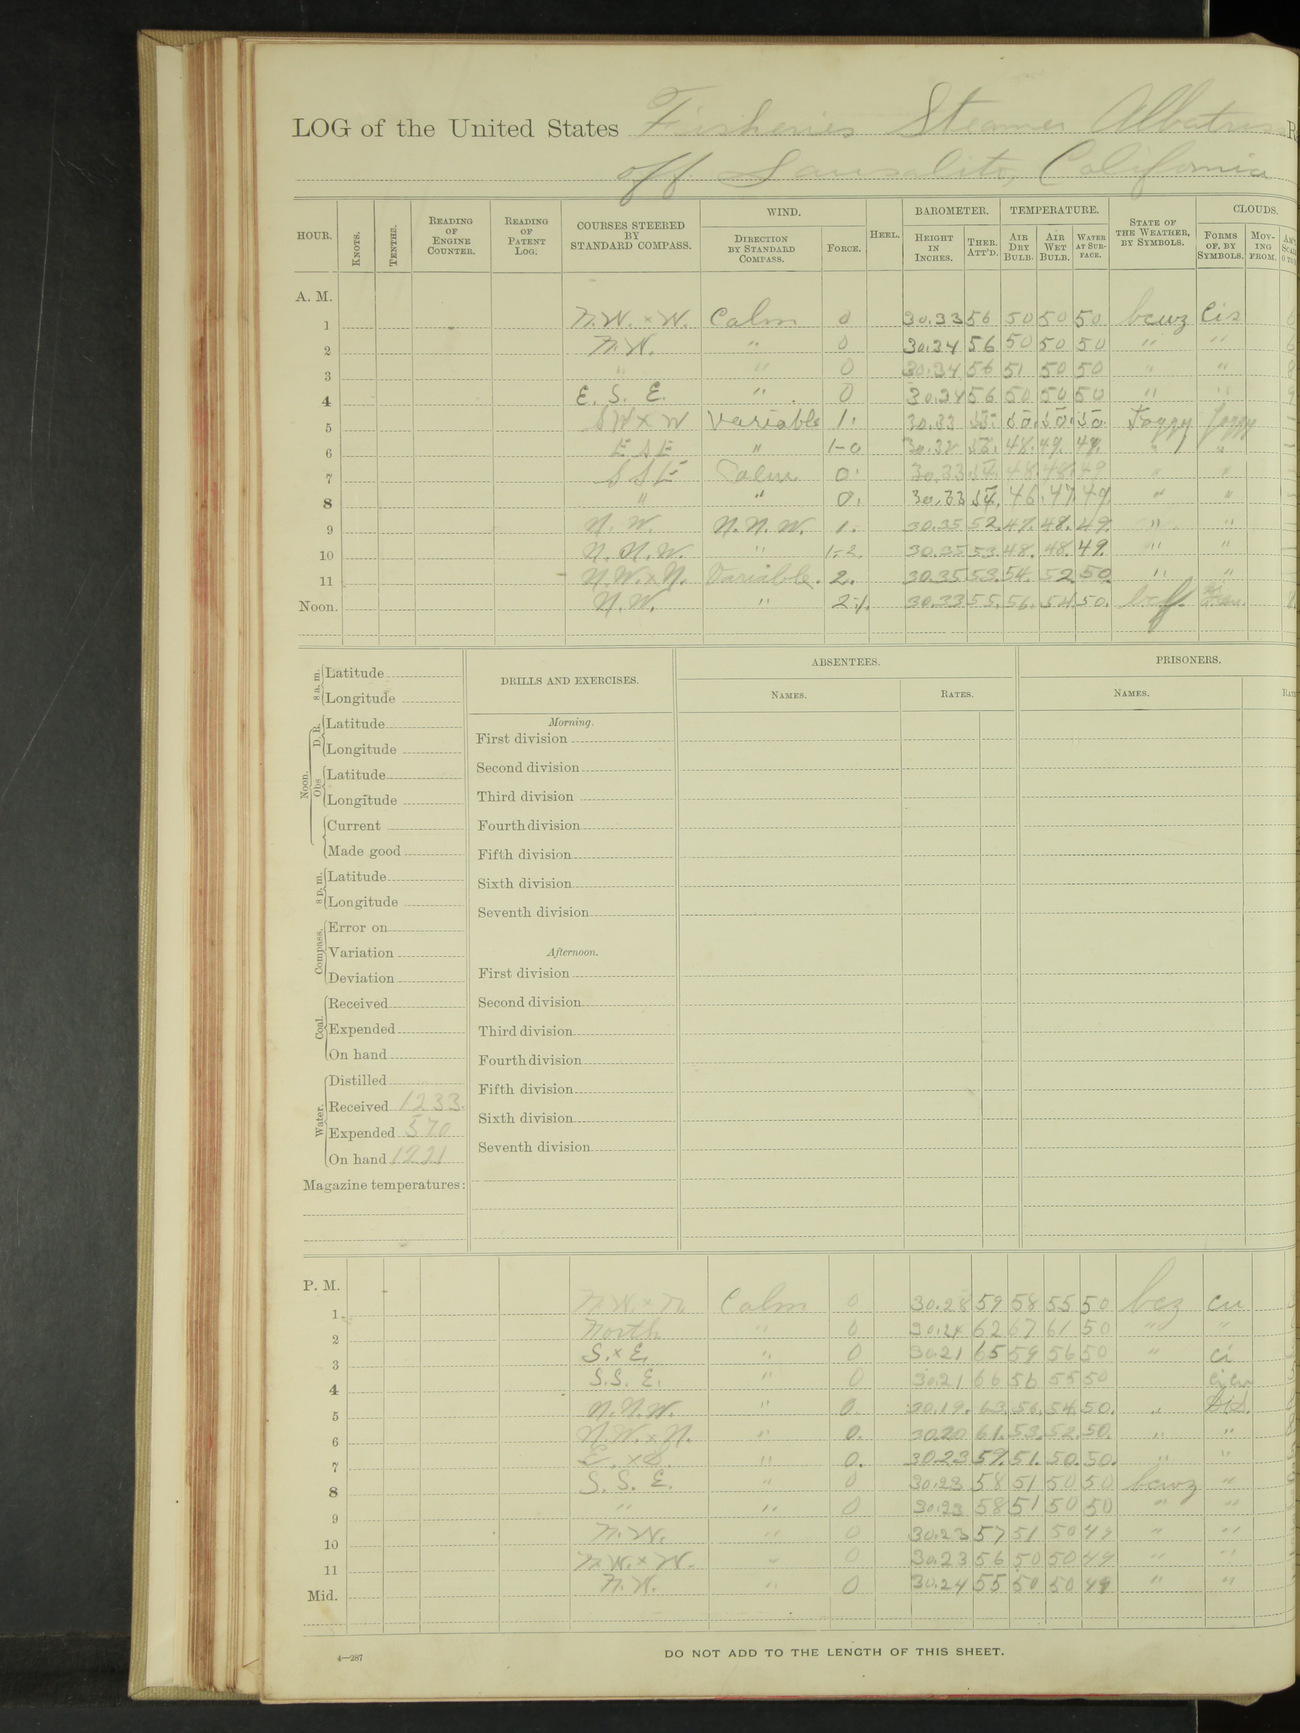 LOG of the United States Fisheries Steamer Albatross R
off Sausalito, California
HOUR. KNOTS. TENTHS. READING OF ENGINE COUNTER. READING OF PATENT LOG. COURSES STEERED BY STANDARD COMPASS. WIND. DIRECTION BY STANDARD COMPASS. FORCE. HEEL. BAROMETER. HEIGHT IN INCHES. THER. ATT'D. TEMPERATURE. AIR DRY BULB. AIR WET BULB. WATER AT SURFACE. STATE OF THE WEATHER, BY SYMBOLS. CLOUDS. FORMS OF, BY SYMBOLS. MOVING FROM.
A. M.
1 N.W. x W. Calm 0 30.33 56 50 50 50 bcwz Cis
2 N.W. " 0 30.34 56 50 50 50 " "
3 " " 0 30.34 56 51 50 50 " "
4 E. S. E. " 0 30.34 56 50 50 50 " "
5 SW x W Variable 1. 30.33 55. 50. 50. 50. Foggy foggy
6 E S E " 1-0 48. 49. 49. " "
7 S S E Calm 0. 30.33 48 48. 49 " "
8 " " 0. 30.33 54. 46. 47. 49. " "
9 N. W. N. N. W. 1. 30.35 52. 47. 48. 49. " "
10 N. N. W. " 1-2. 30.35 53. 48. 48. 49. " "
11 N.W. x N. Variable. 2. 30.35 53. 54. 52. 50. " "
Noon. N.W. " 2-1. 30.33 55. 56. 54. 50. bcf.
8 a. m. Latitude
Longitude
Noon. D. R. Latitude
Longitude
Obs Latitude
Longitude
Current
Made good
8 p. m. Latitude
Longitude
Compass. Error on
Variation
Deviation
Coal. Received
Expended
On hand
Water. Distilled
Received 1233.
Expended 570
On hand 1221
Magazine temperatures:
DRILLS AND EXERCISES.
Morning.
First division
Second division
Third division
Fourth division
Fifth division
Sixth division
Seventh division
Afternoon.
First division
Second division
Third division
Fourth division
Fifth division
Sixth division
Seventh division
ABSENTEES.
NAMES. RATES.
PRISONERS.
NAMES.
P. M.
1 N.W. x N. Calm 0 30.28 59 58 55 50 bcz cu
2 North " 0 30.24 62 67 61 50 " "
3 S. x E. " 0 30.21 65 59 56 50 " ci
4 S.S. E. " 0 30.21 66 56 55 50 ci.cu
5 N.N.W. " 0. 30.19. 63. 56. 54. 50. "
6 N.W. x N. " 0. 30.20 61. 53. 52. 50. " "
7 E. x S. " 0. 30.23 59. 51. 50. 50. " "
8 S. S. E. " 0 30.23 58 51 50 50 bcwz "
9 " " 0 30.23 58 51 50 50 " "
10 N.W. " 0 30.23 57 51 50 49 " "
11 N.W. x W. " 0 30.23 56 50 50 49 " "
Mid. N.W. " 0 30.24 55 50 50 49 " "
4—287
DO NOT ADD TO THE LENGTH OF THIS SHEET.